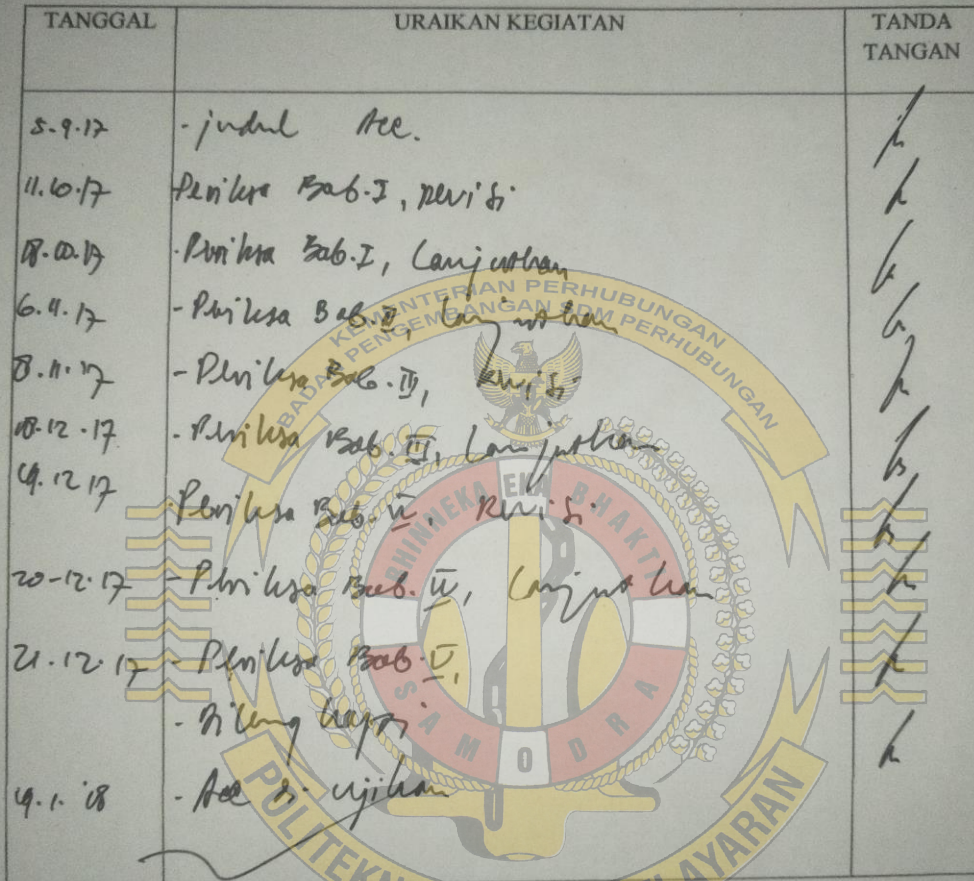 TANGGAL URAIKAN KEGIATAN TANDA
TANGAN
5.9.17 - judul Acc.
11.10.17 Periksa Bab.I, revisi
- Periksa Bab.I, Lanjutkan
6.11.17 - Periksa Bab.II, Lanjutkan
- Periksa Bab. III, Revisi
- Periksa Bab. III, Lanjutkan
12 17 Periksa Bab. Revisi
20-12-17 - Periksa Bab. IV, Lanjutkan
21.12.17 - Periksa Bab.V,
- Dilengkapi
- Acc di ujikan
KEMENTERIAN PERHUBUNGAN
BADAN PENGEMBANGAN SDM PERHUBUNGAN
BHINEKA EKA BHAKTI
SAMODRA